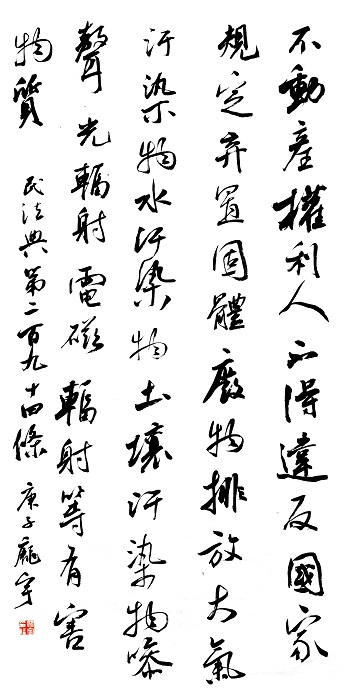 不動產權利人不得違反國家
規定弃置固體廢物排放大氣
汙染物水汙染物土壤汙染物噪
聲光輻射電磁輻射等有害
物質
民法典第二百九十四條
庚子 宇